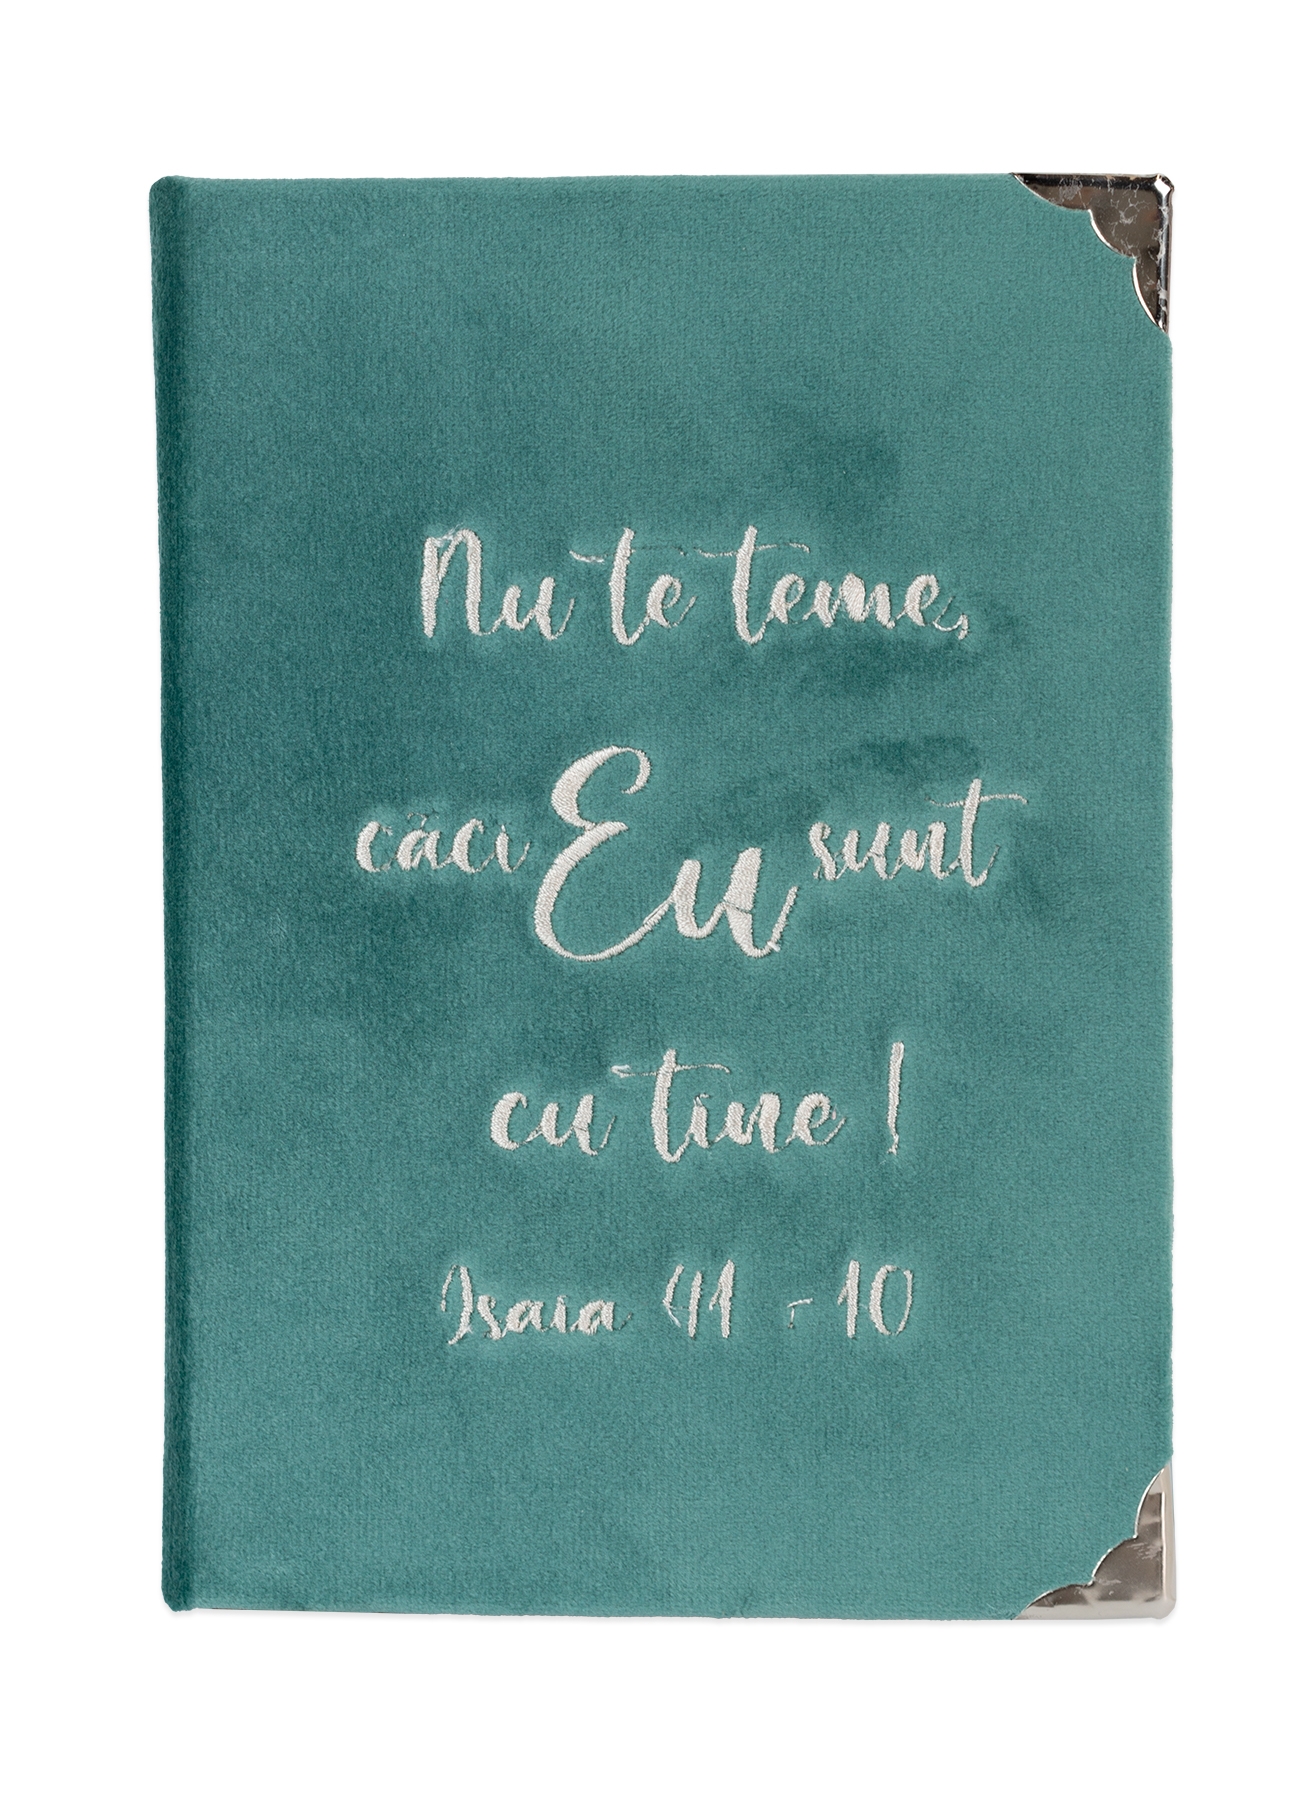 Nu te teme,
căci Eu sunt
cu tine !
Isaia 41 - 10